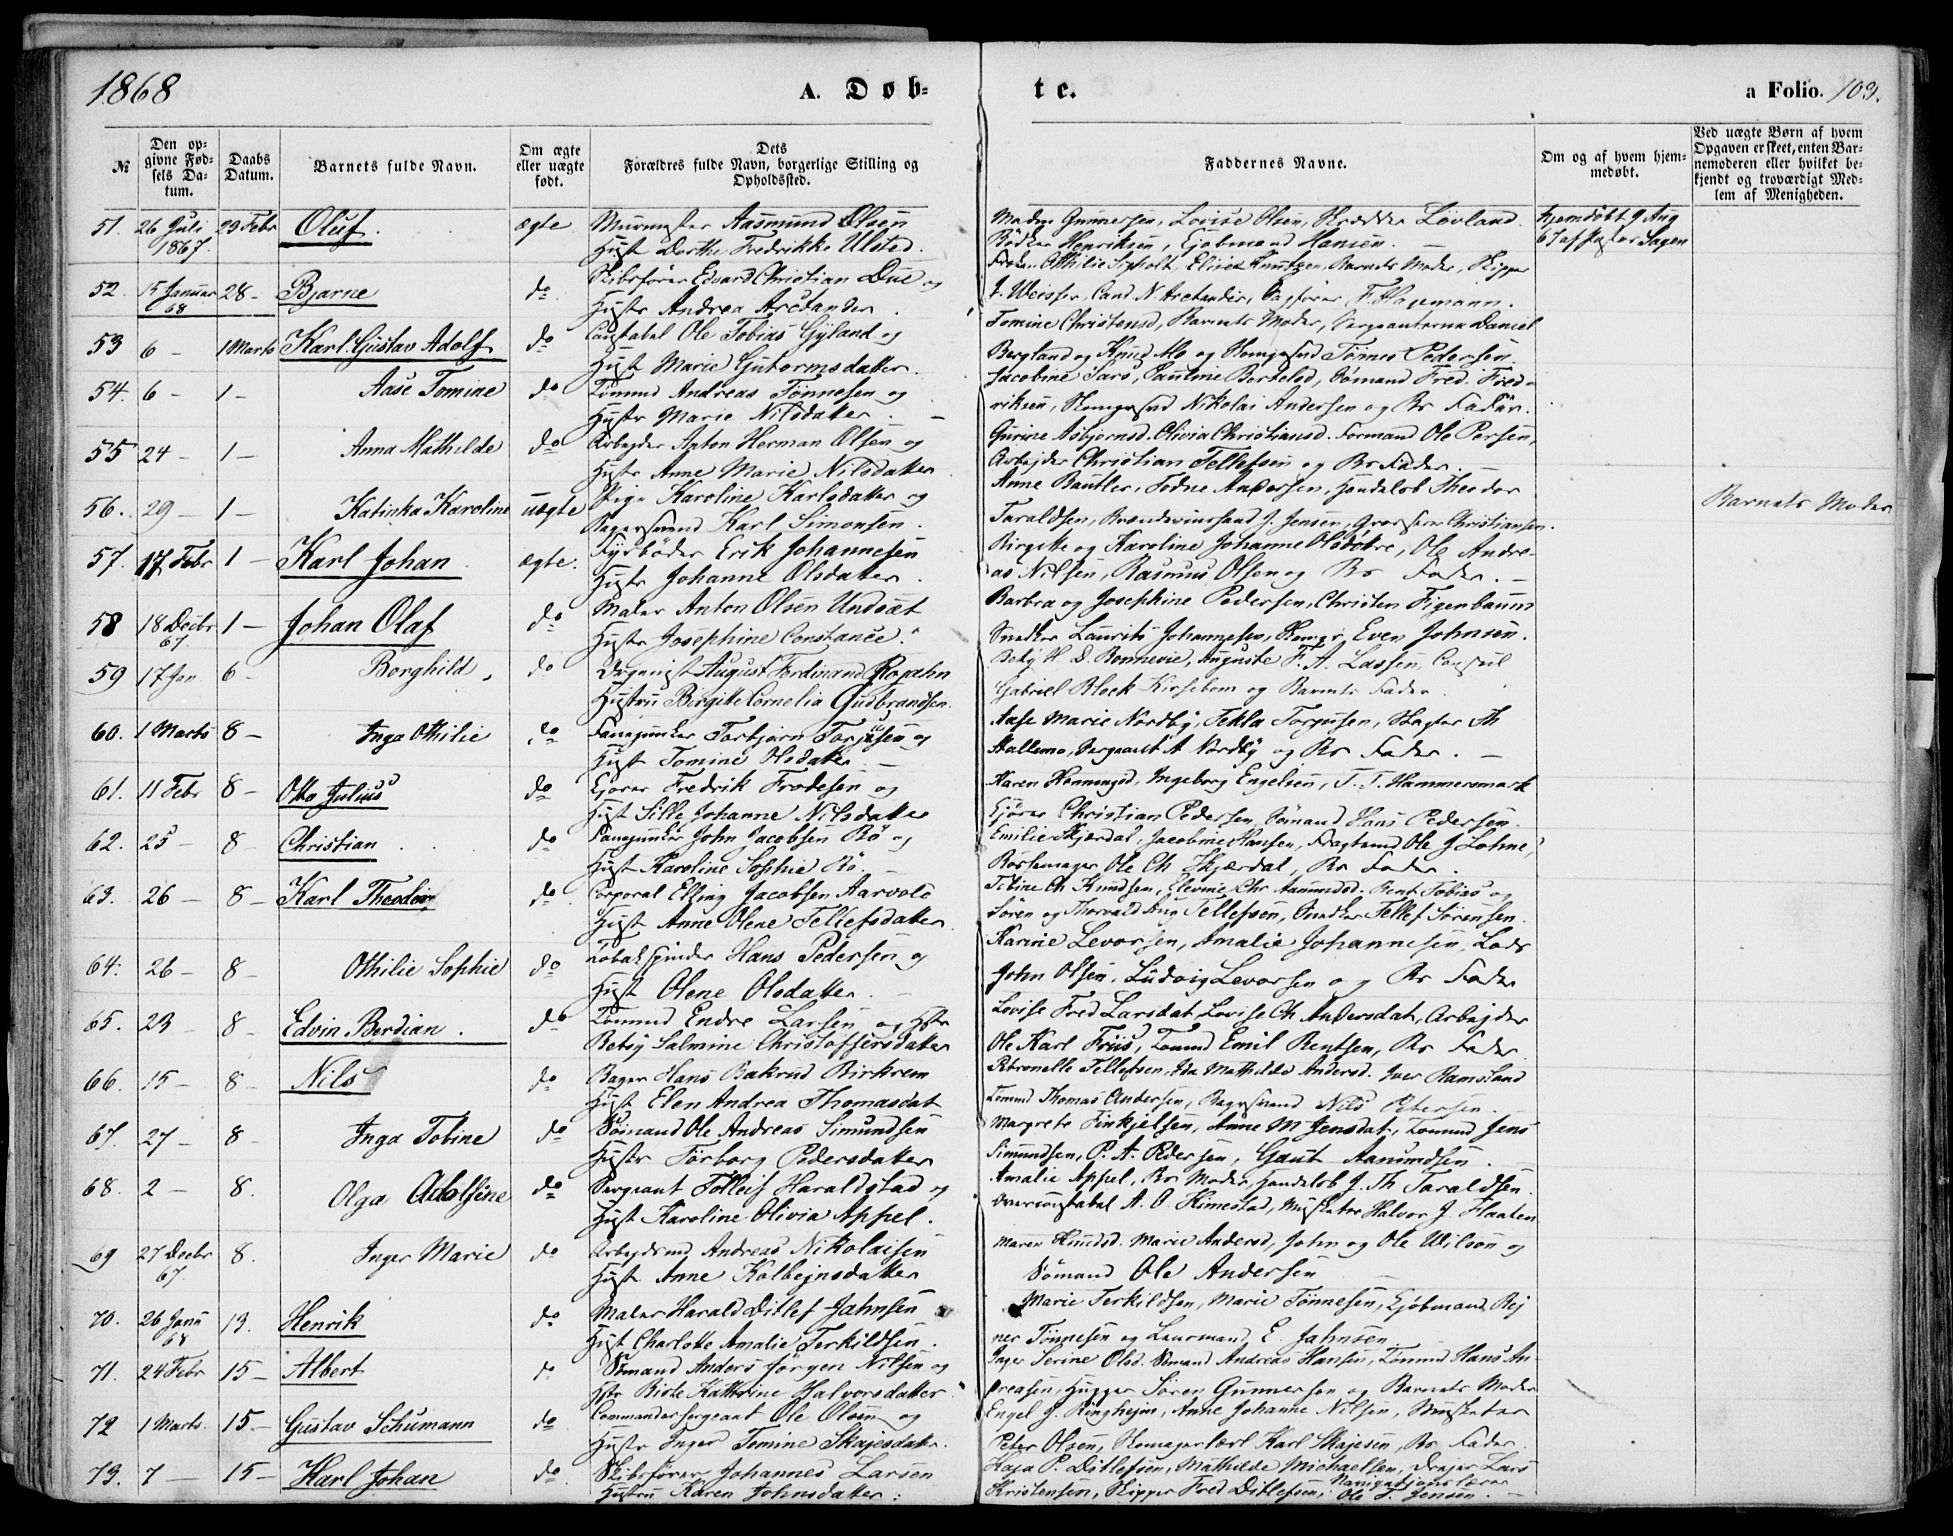 1868
A. Døb-
te.
a Folio. 103.
№
Den op-
givne Fød-
sels Da-
tum.
Daabs
Datum.
Barnets fulde Navn.
Om ægte
eller uægte
født.
Dets
Forældres fulde Navn, borgerlige Stilling og
Opholdssted.
Faddernes Navne.
Om og af hvem hjem-
medøbt.
Ved uægte Børn af hvem
Opgaven er skeet, enten Bar-
nemoderen eller hvilket be-
kjendt og troværdigt Med-
lem af Menigheden.
51. 26 Juli 23 Febr Oluf. ægte Murmester Aasmund Olsen
1867. Hust Dorthe Fredrikke Ulsted.
Gunnersen, Lovise Olsen, Løvland. hjemdøbt 9 Aug
Bødker Henriksen, Kjøbmand Hansen. 67 af Pastor Sagen
52. 15 Januar 28 - Bjarne do Skibsfører Edvard Christian Due og
68 Hustr Andrea Arctander.
Frøken Othilie, Elise Knutzen, Barnets Moder, Skipper
J. Weisser, Cand N. Arctander, F. Hagemann.
53 6 - 1 Marts Karl Gustav Adolf do Constabel Ole Tobias Gyland og
Hust Marie Gutormsdatter.
Tomine Christensd, Barnets Moder, Sergeanterne Daniel
Bergland og Knud Mo og Tønnes Pedersen.
54. 6 - 1 - Aase Tomine do Tømmd Andreas Tønnesen og
Hustr Marie Nilsdatter. -
Jacobine Sars, Pauline Bertelsd, Sømand Fred. Fred-
riksen, Nikolai Andersen og Bs Fader.
55 24 - 1 - Anna Mathilde do Arbejder Anton Herman Olsen og
Hustr Anne Marie Nilsdatter.
Gurine Asbjørnsd. Olivia Christiansd. Formand Ole Persen,
Arbejder Christian Tellefsen og Bs Fader. -
56. 29 - 1 - Katinka Karoline uægte Pige Karoline Karlsdatter og
Bagersvend Karl Simonsen.
Anne Bautler, Todne Andersen, Handelsb Theodor
Taraldsen, J. Jensen, Christiansen.
Barnets Moder
57. 17 Febr 1 - Karl Johan. ægte. Fyrbøder Erik Johannesen
Hustr Johanne Olsdatter.
Birgitte og Karoline Johanne Olsdøtre, Ole Andre-
as Nilsen, Rasmus Olsen og Bs Fader. -
58 18 Decbr 1 - Johan Olaf do Maler Anton Olsen Undset
67. Hustr Josephine Constance.
Barbra og Josephine Pedersen, Christen Figenbaum
Snedker Laurits Johannesen, Even Johnsen.
59 17 Jan 6 - Borghild, do Organist August Ferdinand Rojahn
Hustru Birgitte Cornelia Gudbrandsen.
Betzy H. D. Bonnevie, Auguste F. A. Lassen, Consul
Gabriel Block Kirsebom og Barnets Fader.
60. 1 Marts 8 - Inga Othilie do Fanejunker Torbjørn Torjusen og
Hust Tomine Olsdatter. -
Aase Marie Nordby, Tekla Torgusen, Slagter Th
Stallemo, Sergeant A Nordby og Bs Fader. -
61. 11 Febr 8 - Otto Julius do Ejører Fredrik Frodesen og
Hust Sille Johanne Nilsdatter
Karen Henningsd, Ingeborg Engelsen, T. T. Hammersmark
Ejører Christian Pedersen, Sømand Hans Pedersen.
62. 25 - 8 - Christian do Fanejunker John Jacobsen Bø og
Hust Karoline Sophie Bø. -
Emilie Skjærdal, Jacobine Hansen, Fragtmd Ole J Lohne,
Ole Ch Skjærdal, Bs Fader.
63. 26 - 8 - Karl Theodor do Corporal Elling Jacobsen Aarvold
Hust Anne Olene Tellefsdatter.
Tetine Ch Knudsen, Elevine Chr Aanundsd. Bent Tobias og
Søren og Thorvald Aug Tellefsen, Snedker Tellef Sørensen.
64. 26 - 8 - Othilie Sophie do Tobakspinder Hans Pedersen og
Hust Olene Olsdatter. -
Karine Levorsen, Amalie Johannesen, Lods
John Olsen, Ludvig Levorsen og Bs Fader
65. 23 - 8 - Edvin Berdian. do Tømmd Endre Larsen og Hstr
Betsy Salmine Christoffersdatter
Lovise Fred Larsdat, Lovise Ch Andersdat, Arbejder
Ole Karl Friis, Tømmd Emil Bentsen, Bs Fader.
66. 15 - 8 - Nils do Bager Hans Bakrud Birkrem
Hust Elen Andrea Thomasdat
Petronelle Tellefsen, Ida Mathilde Andersd. Iver Ramsland
Tømmd Thomas Andersen, Bagersvend Nils Petersen. -
67. 27 - 8 - Inga Tobine do Sømand Ole Andreas Simundsen
Hustr Torborg Pedersdatter
Margrete Finkjelsen, Anne M Jensdat, Tømmd Jens
Simundsen, P. A. Pedersen, Gaut Aanundsen.
68. 2 - 8. Olga Adolfine do Sergeant Tolleif Haraldstad og
Hust Karoline Olivia Appel.
Amalie Appel, Bs Moder, Handelsb J. Th Taraldsen
Overconstabel A. O. Kimestad, Musketer Halvor J. Haaten
69 27 Decbr 8. Inger Marie do Arbejdsmd Andreas Nikolaisen
67. Hust Anne Kolbejnsdatter
Maren Knudsd. Marie Andersd, John og Ole Wilson og
Sømand Ole Andersen -
70. 26 Janu 13. Henrik do Maler Harald Ditlef Jahnsen
68 Hust Charlotte Amalie Terkildsen.
Marie Terkildsen, Marie Tønnesen, Kjøbmand Rej
ner Tønnesen og Laurmand E. Jahnsen.
71. 24 Febr 15 - Albert do Sømand Anders Jørgen Nilsen og
Hstr Birte Kathrine Halvorsdatter.
Inger Serine Olsd. Sømand Andreas Hansen, Tømmd Hans An-
dreasen, Hugger Søren Gunnersen og Barnets Moder
72 1 Marts. 15 - Gustav Schumann do Commandersergeant Ole Olsen og
Hustr Inger Tomine Skajesdatter.
Engel J. Ringhejm, Anne Johanne Nilsen, Musketer
Peter Olsen, Karl Skajesen, Bs Fader.
73. 7 - 15 - Karl Johan do Skibsfører Johannes Larsen
Hustru Karen Johnsdatter.
Kaja P. Ditlefsen, Mathilde Michaelsen, Drejer Lars
Kristensen, Skipper Fred Ditlefsen, Navigationslærer
Ole T. Jensen. -